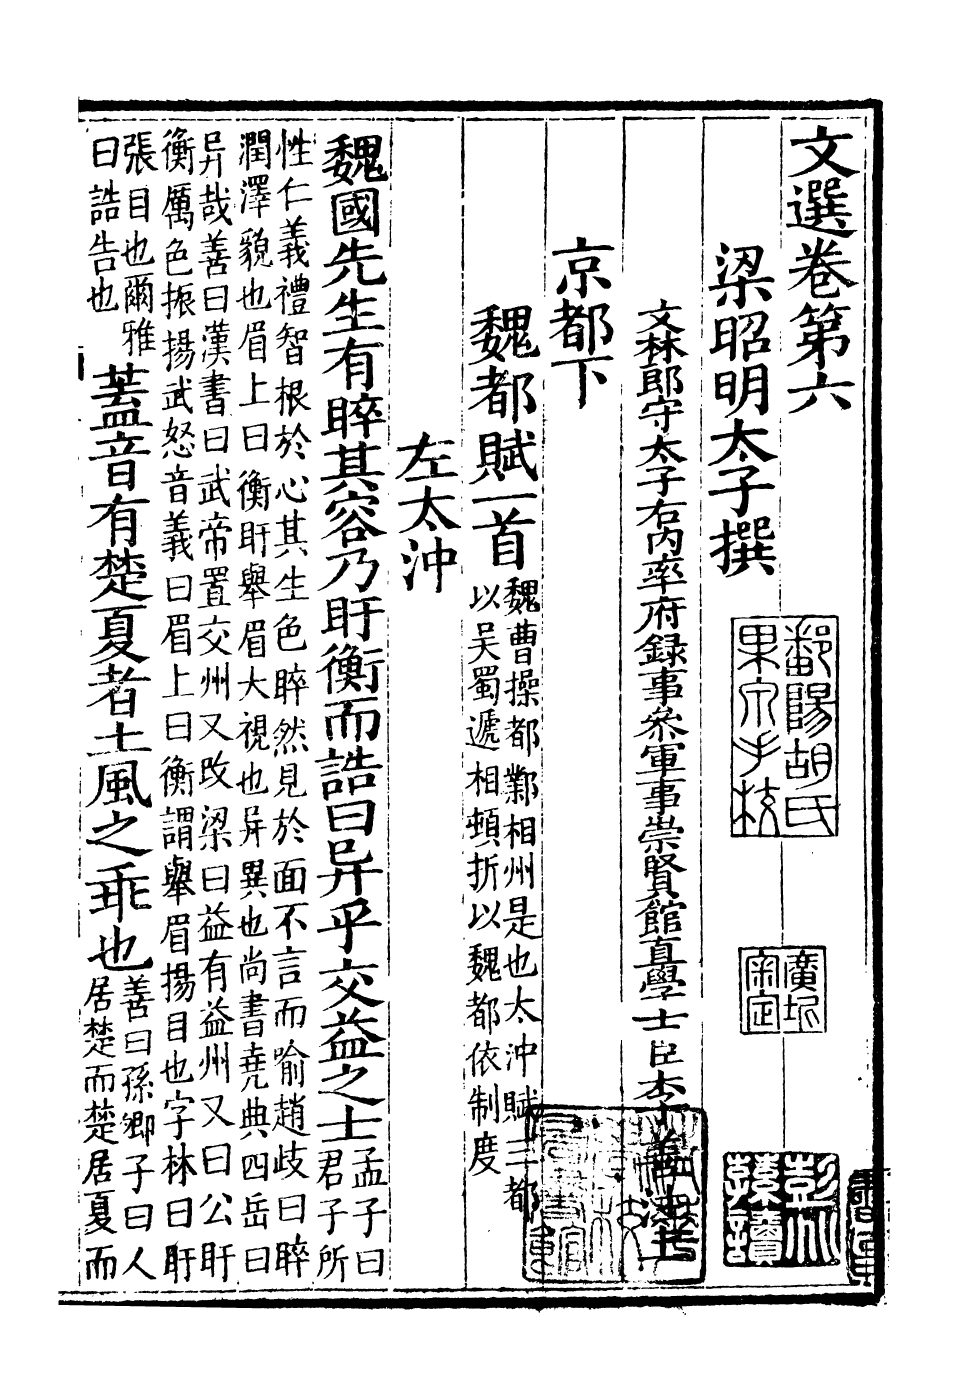 文選卷第六
梁昭明太子撰
鄱陽胡氏
果泉手校
廣圻
審定
彭兆
蓀讀
文林郎守太子右內率府録事叅軍事崇賢館直學士臣李善注上
京都下
魏都賦一首魏曹操都鄴相州是也太沖賦三都
以吳蜀遞相頓折以魏都依制度
左太沖
魏國先生有睟其容乃盱衡而誥曰异乎交益之士孟子曰
君子所
性仁義禮智根於心其生色睟然見於面不言而喻趙歧曰睟
潤澤貌也眉上曰衡盱舉眉大視也异異也尚書堯典四岳曰
异哉善曰漢書曰武帝置交州又改梁曰益有益州又曰公盱
衡厲色振揚武怒音義曰眉上曰衡謂舉眉揚目也字林曰盱
張目也爾雅
曰誥告也
蓋音有楚夏者土風之乖也善曰孫卿子曰人
居楚而楚居夏而